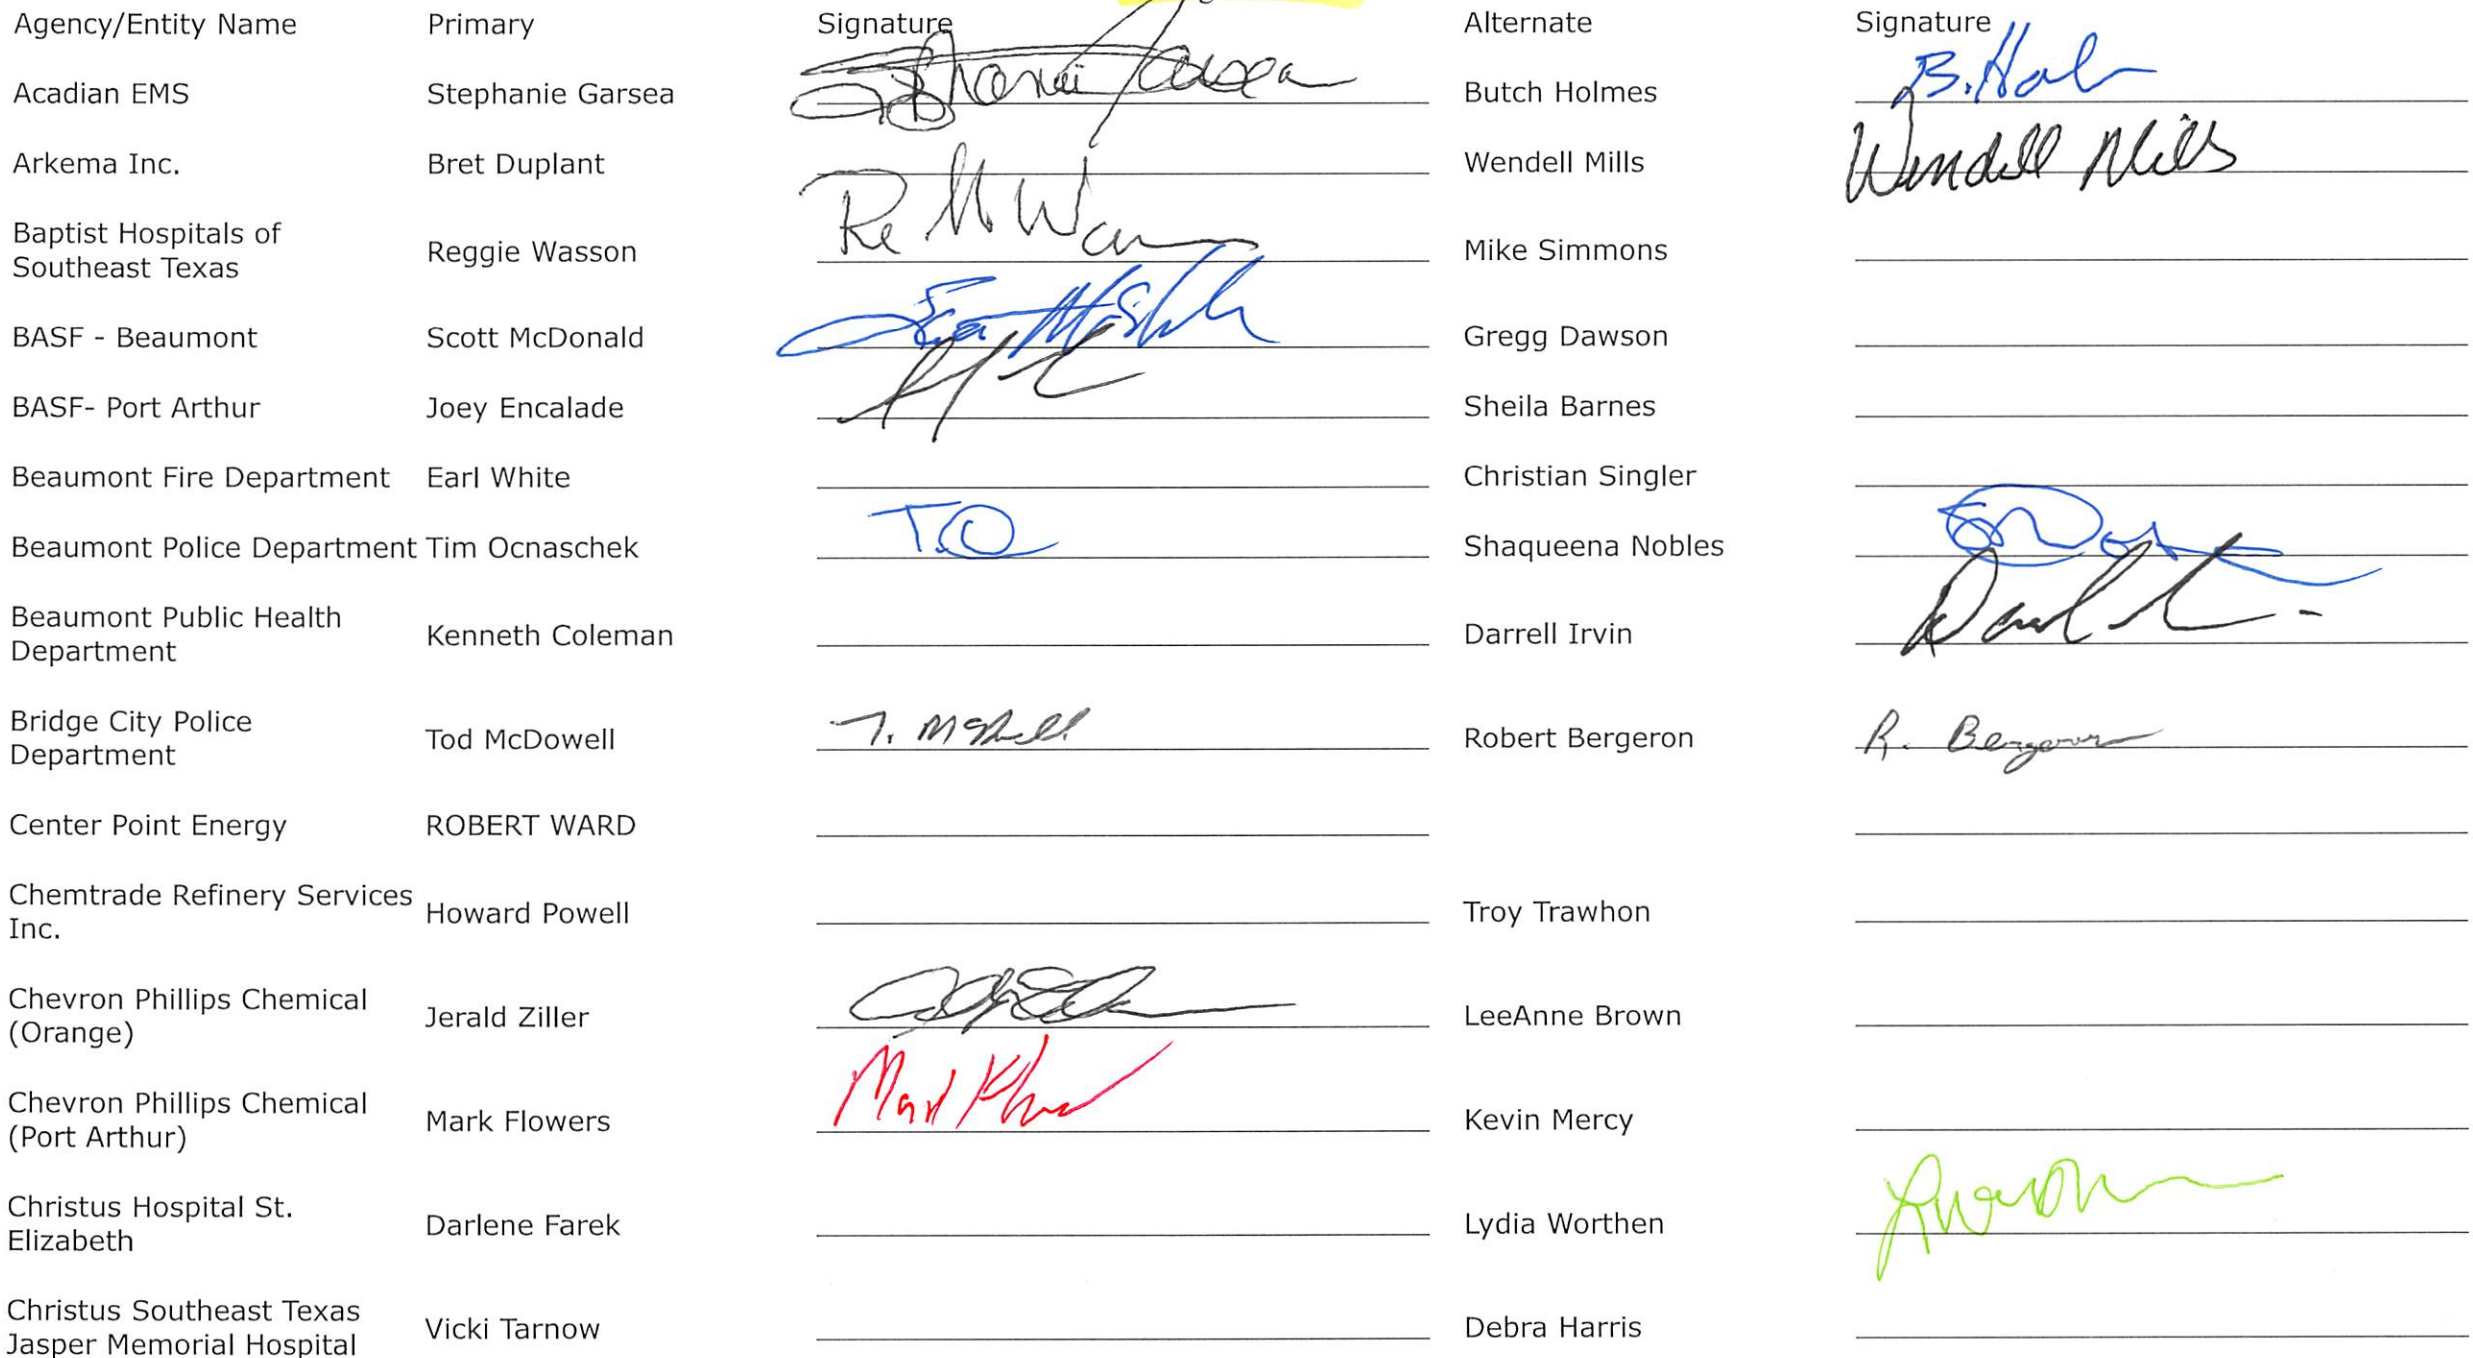 Agency/Entity Name Primary Signature Alternate Signature
Acadian EMS Stephanie Garsea Butch Holmes B. Hol
Arkema Inc. Bret Duplant Wendell Mills Wendell Mills
Baptist Hospitals of
Southeast Texas Reggie Wasson Mike Simmons
BASF - Beaumont Scott McDonald Gregg Dawson
BASF- Port Arthur Joey Encalade Sheila Barnes
Beaumont Fire Department Earl White Christian Singler
Beaumont Police Department Tim Ocnaschek T.O Shaqueena Nobles
Beaumont Public Health
Department Kenneth Coleman Darrell Irvin
Bridge City Police
Department Tod McDowell T. Robert Bergeron R. Bergeron
Center Point Energy ROBERT WARD
Chemtrade Refinery Services
Inc. Howard Powell Troy Trawhon
Chevron Phillips Chemical
(Orange) Jerald Ziller LeeAnne Brown
Chevron Phillips Chemical
(Port Arthur) Mark Flowers Mark Kevin Mercy
Christus Hospital St.
Elizabeth Darlene Farek Lydia Worthen
Christus Southeast Texas
Jasper Memorial Hospital Vicki Tarnow Debra Harris